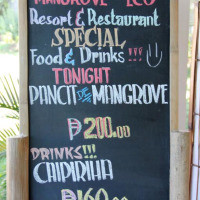 MANGROVE ECO
Resort & Restaurant
SPECIAL
Food & Drinks !!!
TONIGHT
PANCIT DE MANGROVE
₱200.00
DRINKS!!!
CHIPIRIHA
₱160.00